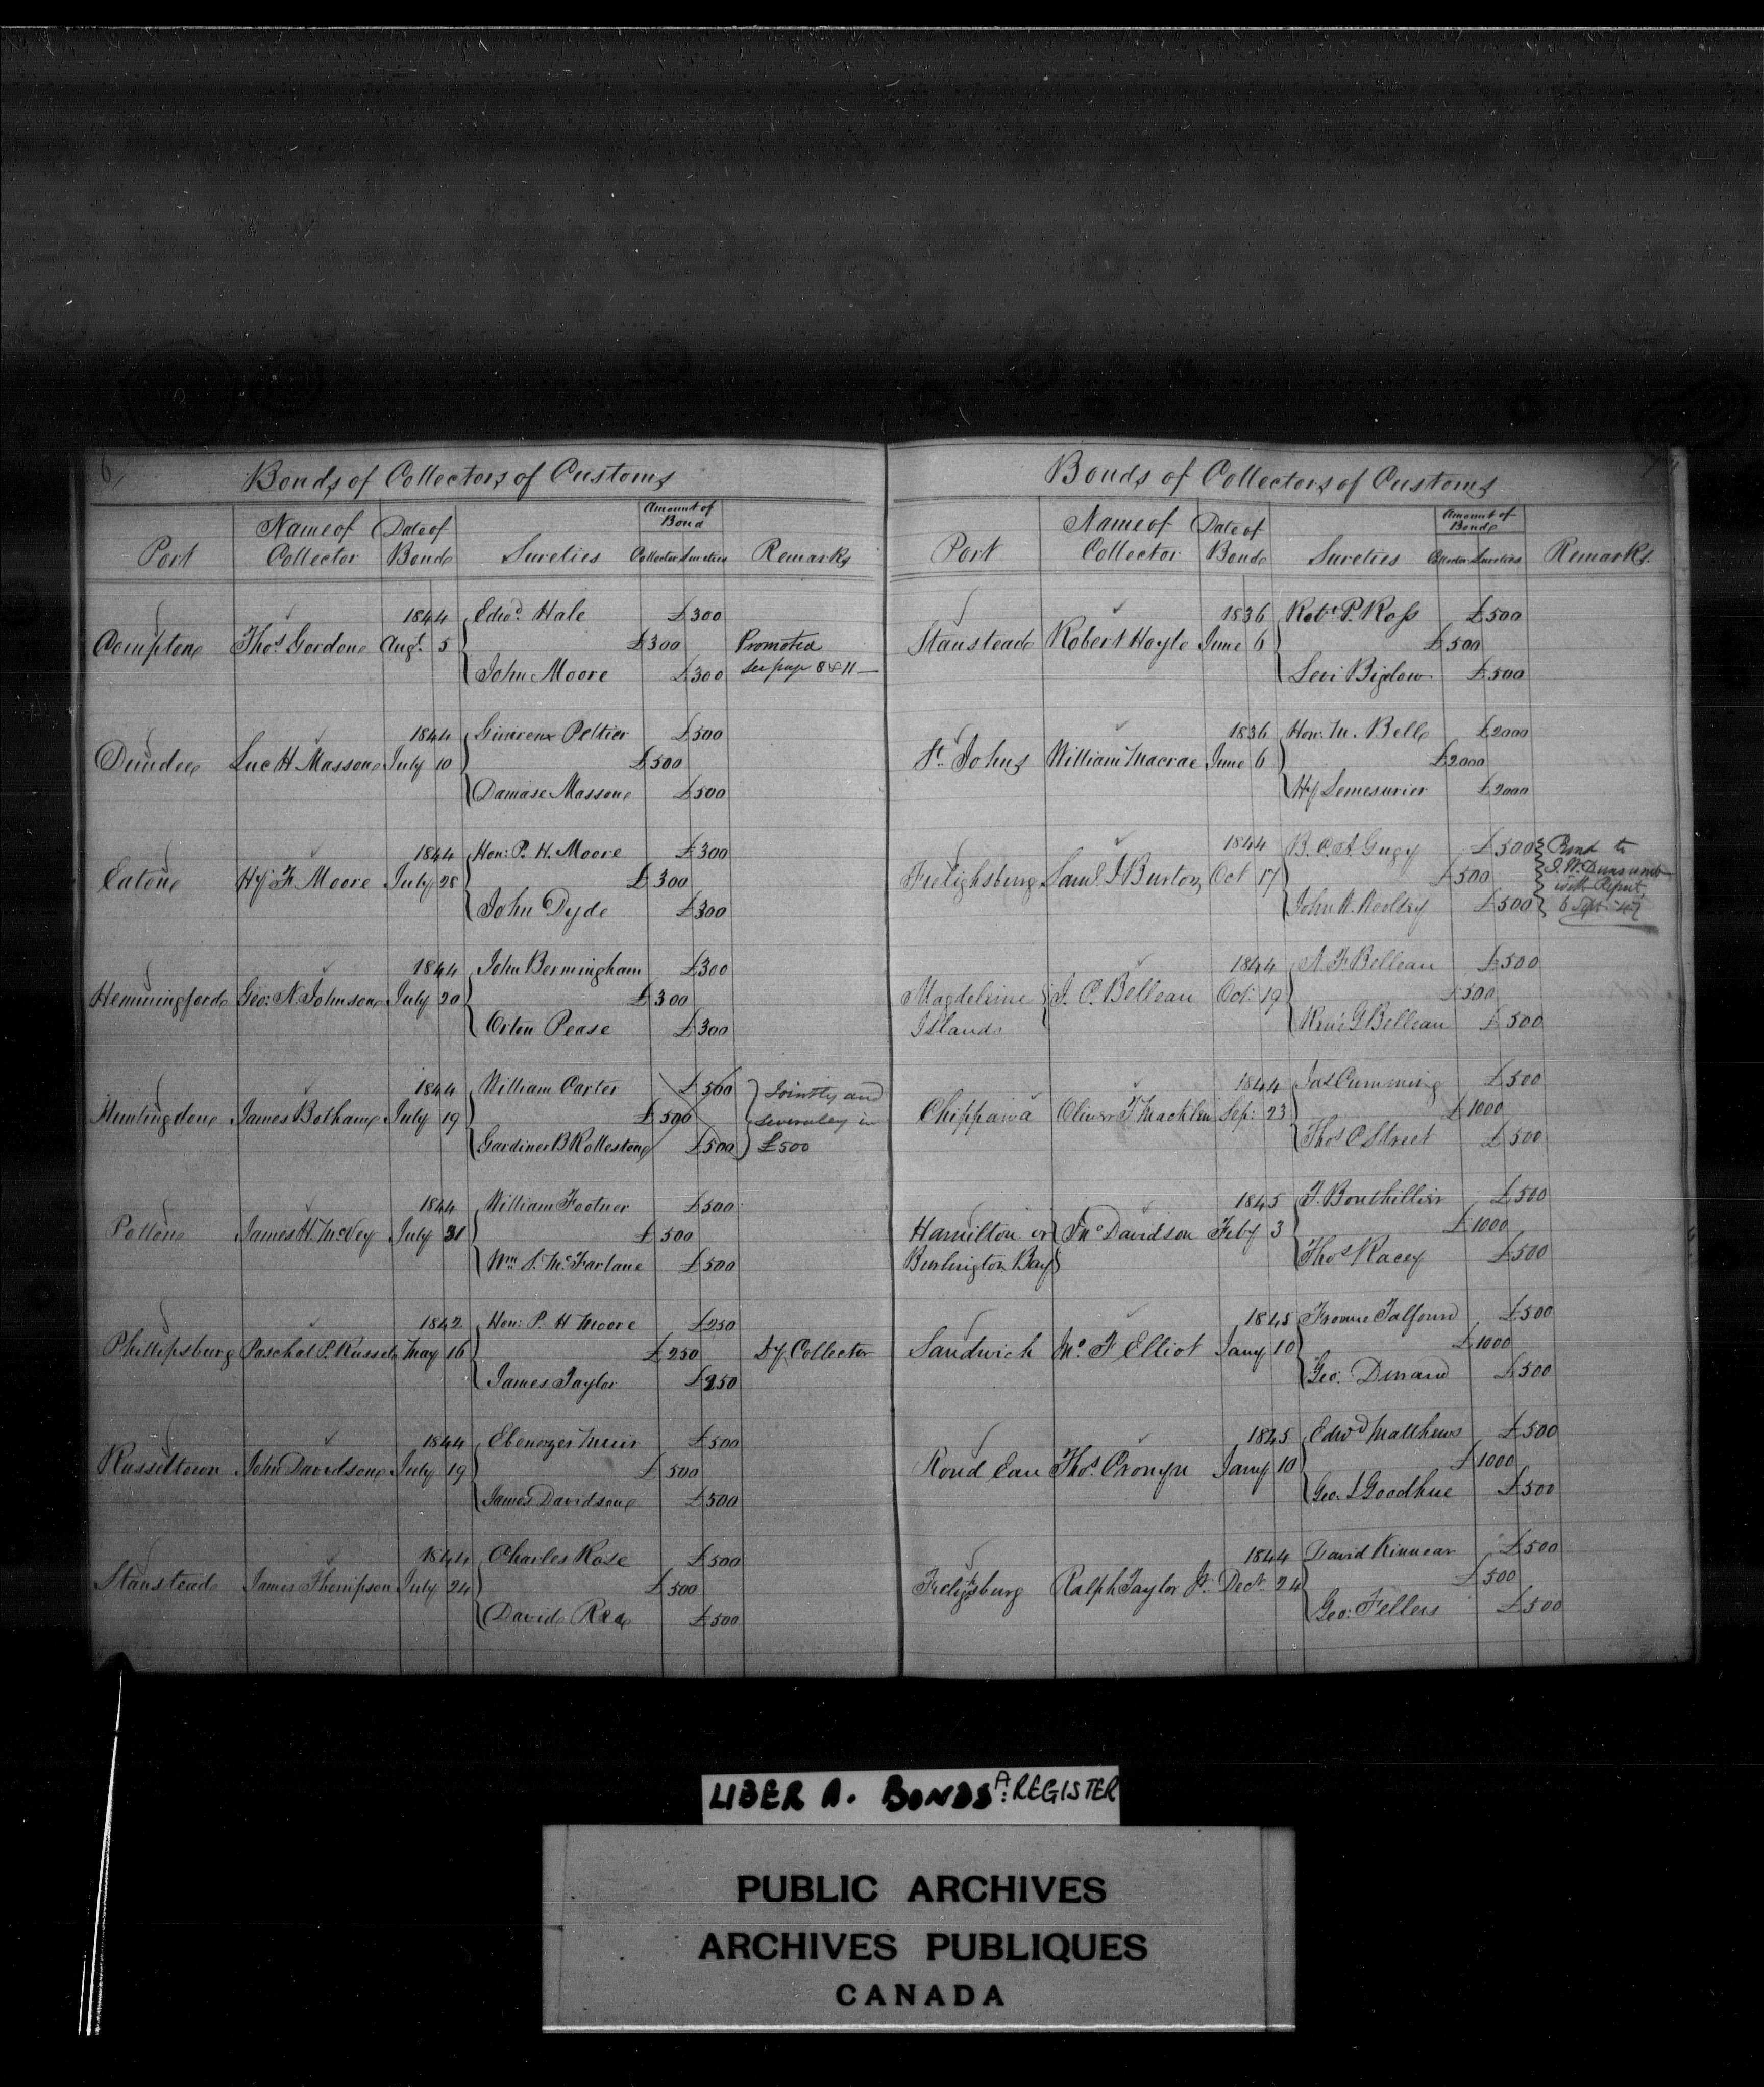 6
Bonds of Collectors of Customs
Port Name of Collector Date of Bond Sureties Amount of Bond Collector Sureties Remarks
1844 Edwd. Hale £300
Compton Thos. Gordon Augt. 5 £300 Promoted
John Moore £300 see page 8 & 11
1844 Peltier £500
Dundee Luc H. Masson July 10 £500
Damase Masson £500
1844 Hon: P. H. Moore £300
Eaton Hy. F. Moore July 28 £300
John Dyde £300
1844 John Bermingham £300
Hemmingford Geo: N. Johnson July 20 £300
Orton Pease £300
1844 William Carter £500 Jointly and
Huntingdon James Botham July 19 £500 severaley in
Gardiner B Rolleston £500 £500
1844 William Footner £500
Potton James H. McVey July 31 £500
Wm. S. McFarlane £500
1842 Hon: P. H Moore £250
Phillipsburg Paschal P. Russell May 16 £250 Dy. Collector
James Taylor £250
1844 Ebenezer Muir £500
Russeltown John Davidson July 19 £500
James Davidson £500
1844 Charles Rose £500
Stanstead James Thompson July 24 £500
David Rea £500
Bonds of Collectors of Customs
Port Name of Collector Date of Bond Sureties Amount of Bonds Collector Sureties Remarks
1836 Robt. P. Ross £500
Stanstead Robert Hoyle June 6 £500
Levi Bigelow £500
1836 Hon: M. Bell £2000
St. Johns William Macrae June 6 £2000
Hy Lemesurier £2000
1844 B. C. A. Gugy £500 Bond to
Freelighsburg Saml. J Burton Oct 17 £500 with
£500 6 Sept 47
1844 A. F. Belleau £500
Magdeleine J. C. Belleau Oct: 19 £500
Islands Réné G. Belleau £500
1844 Jas Cumming £500
Chippawa Oliver T. Macklem Sep: 23 £1000
Thos C Street £500
1845 T. Bouthillier £500
Hamilton or Jno Davidson Feby 3 £1000
Burlington Bay Thos Racey £500
1845 Froome Talfourd £500
Sandwich Jno. F. Elliot Jany 10 £1000
Geo. £500
1845 Edwd Matthews £500
Rond Eau Thos. Cronyn Jany 10 £1000
Geo. J Goodhue £500
1844 David Kinnear £500
Freligsburg Ralph Taylor Jr. Decr. 24 £500
Geo: Fellers £500
LIBER A. BONDS A: REGISTER
PUBLIC ARCHIVES
ARCHIVES PUBLIQUES
CANADA